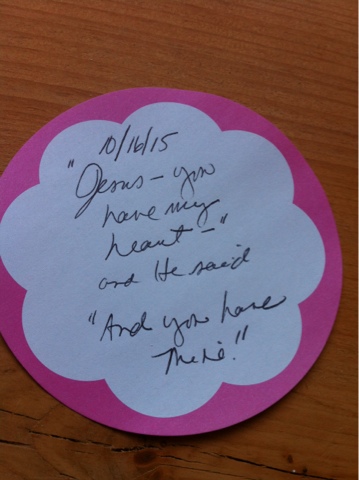 10/16/15
"Jesus – you
have my
heart –"
and He said
"And you have
mine."